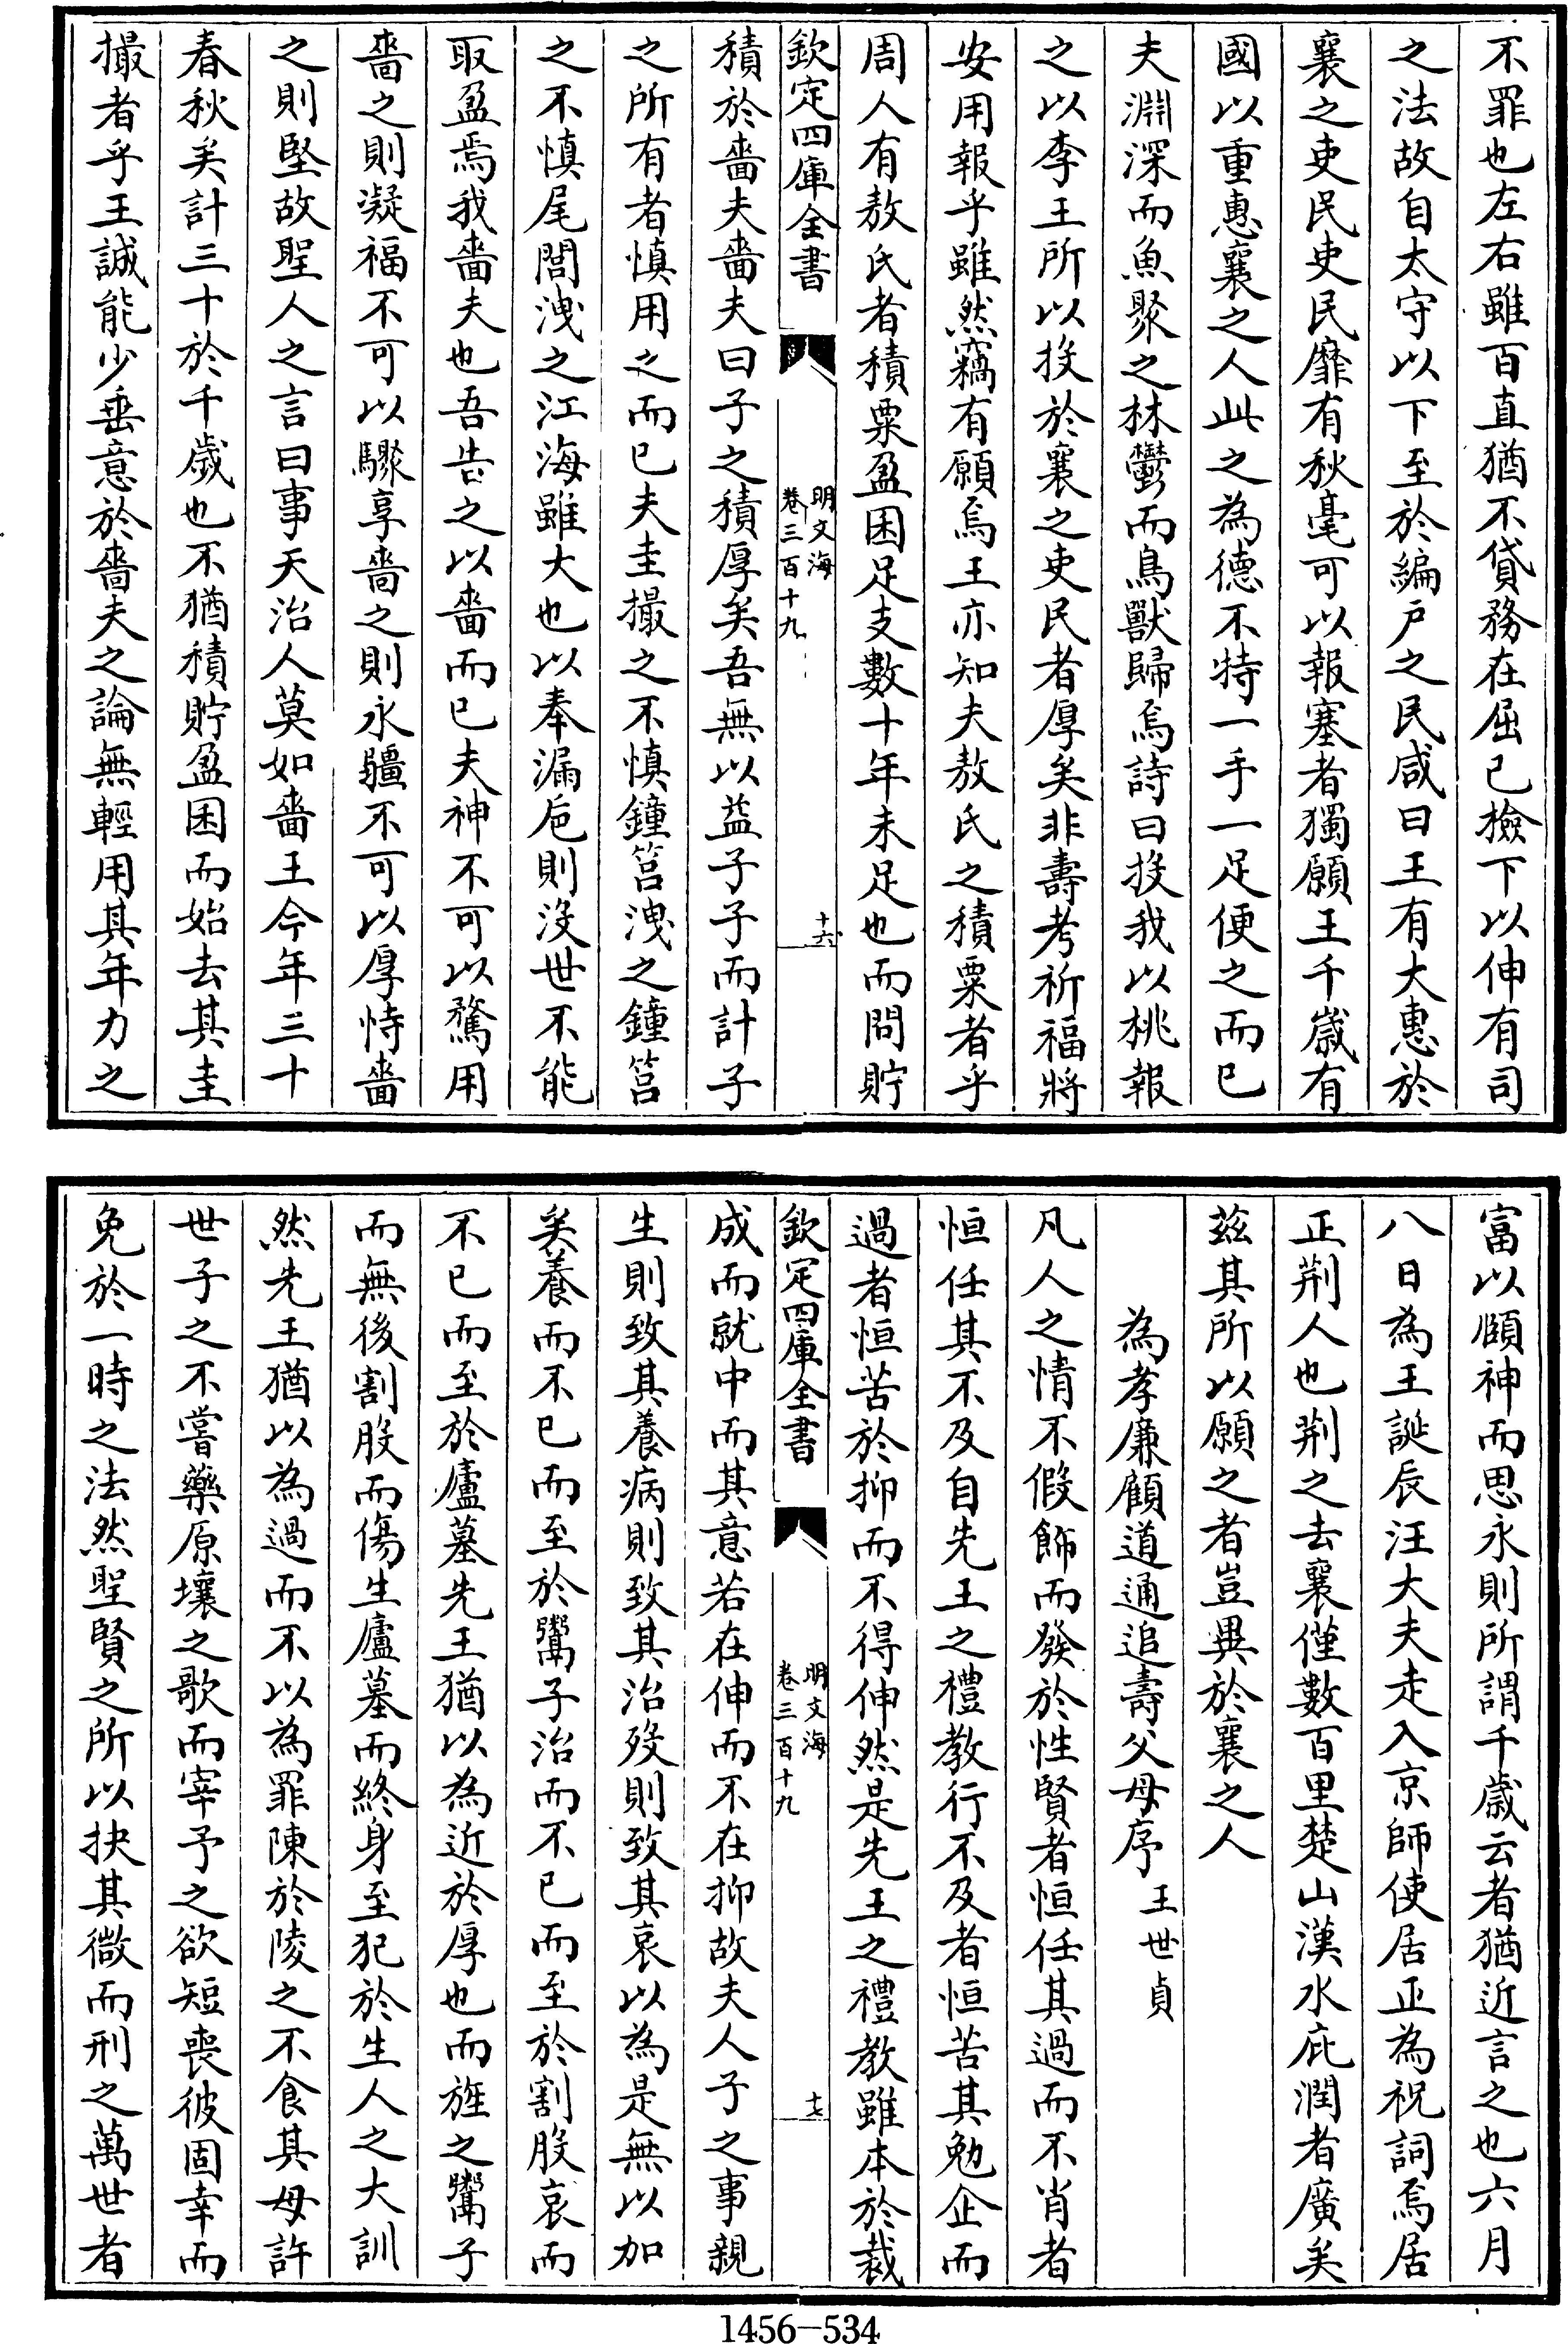 不罪也左右雖百直猶不貸務在屈己撿下以伸有司
之法故自太守以下至於編戸之民咸曰王有大惠於
襄之吏民吏民靡有秋毫可以報塞者獨願王千嵗有
國以重惠襄之人此之為德不特一手一足便之而已
夫淵深而魚聚之林鬱而鳥獸歸焉詩曰投我以桃報
之以李王所以投於襄之吏民者厚矣非壽考祈福將
安用報乎雖然竊有願焉王亦知夫敖氏之積粟者乎
周人有敖氏者積粟盈囷足支數十年未足也而問貯
欽定四庫全書
明文海
卷三百十九
十六
積於嗇夫嗇夫曰子之積厚矣吾無以益子子而計子
之所有者慎用之而已夫圭撮之不慎鐘筥洩之鐘筥
之不慎尾閭洩之江海雖大也以奉漏巵則沒世不能
取盈焉我嗇夫也吾告之以嗇而已夫神不可以騖用
嗇之則凝福不可以驟享嗇之則永疆不可以厚恃嗇
之則堅故聖人之言曰事天治人莫如嗇王今年三十
春秋矣計三十於千歲也不猶積貯盈囷而始去其圭
撮者乎王誠能少垂意於嗇夫之論無輕用其年力之
富以頤神而思永則所謂千歲云者猶近言之也六月
八日為王誕辰汪大夫走入京師使居正為祝詞焉居
正荆人也荆之去襄僅數百里楚山漢水庇潤者廣矣
兹其所以願之者豈異於襄之人
為孝廉顧道通追壽父母序王世貞
凡人之情不假飾而發於性賢者恒任其過而不肖者
恒任其不及自先王之禮教行不及者恒苦其勉企而
過者恒苦於抑而不得伸然是先王之禮教雖本於裁
欽定四庫全書
明文海
卷三百十九
十七
成而就中而其意若在伸而不在抑故夫人子之事親
生則致其養病則致其治歿則致其哀以為是無以加
矣養而不已而至於鬻子治而不已而至於割股哀而
不已而至於廬墓先王猶以為近於厚也而旌之鬻子
而無後割股而傷生廬墓而終身至犯於生人之大訓
然先王猶以為過而不以為罪陳於陵之不食其母許
世子之不嘗藥原壤之歌而宰予之欲短喪彼固幸而
免於一時之法然聖賢之所以抉其微而刑之萬世者
1456-534